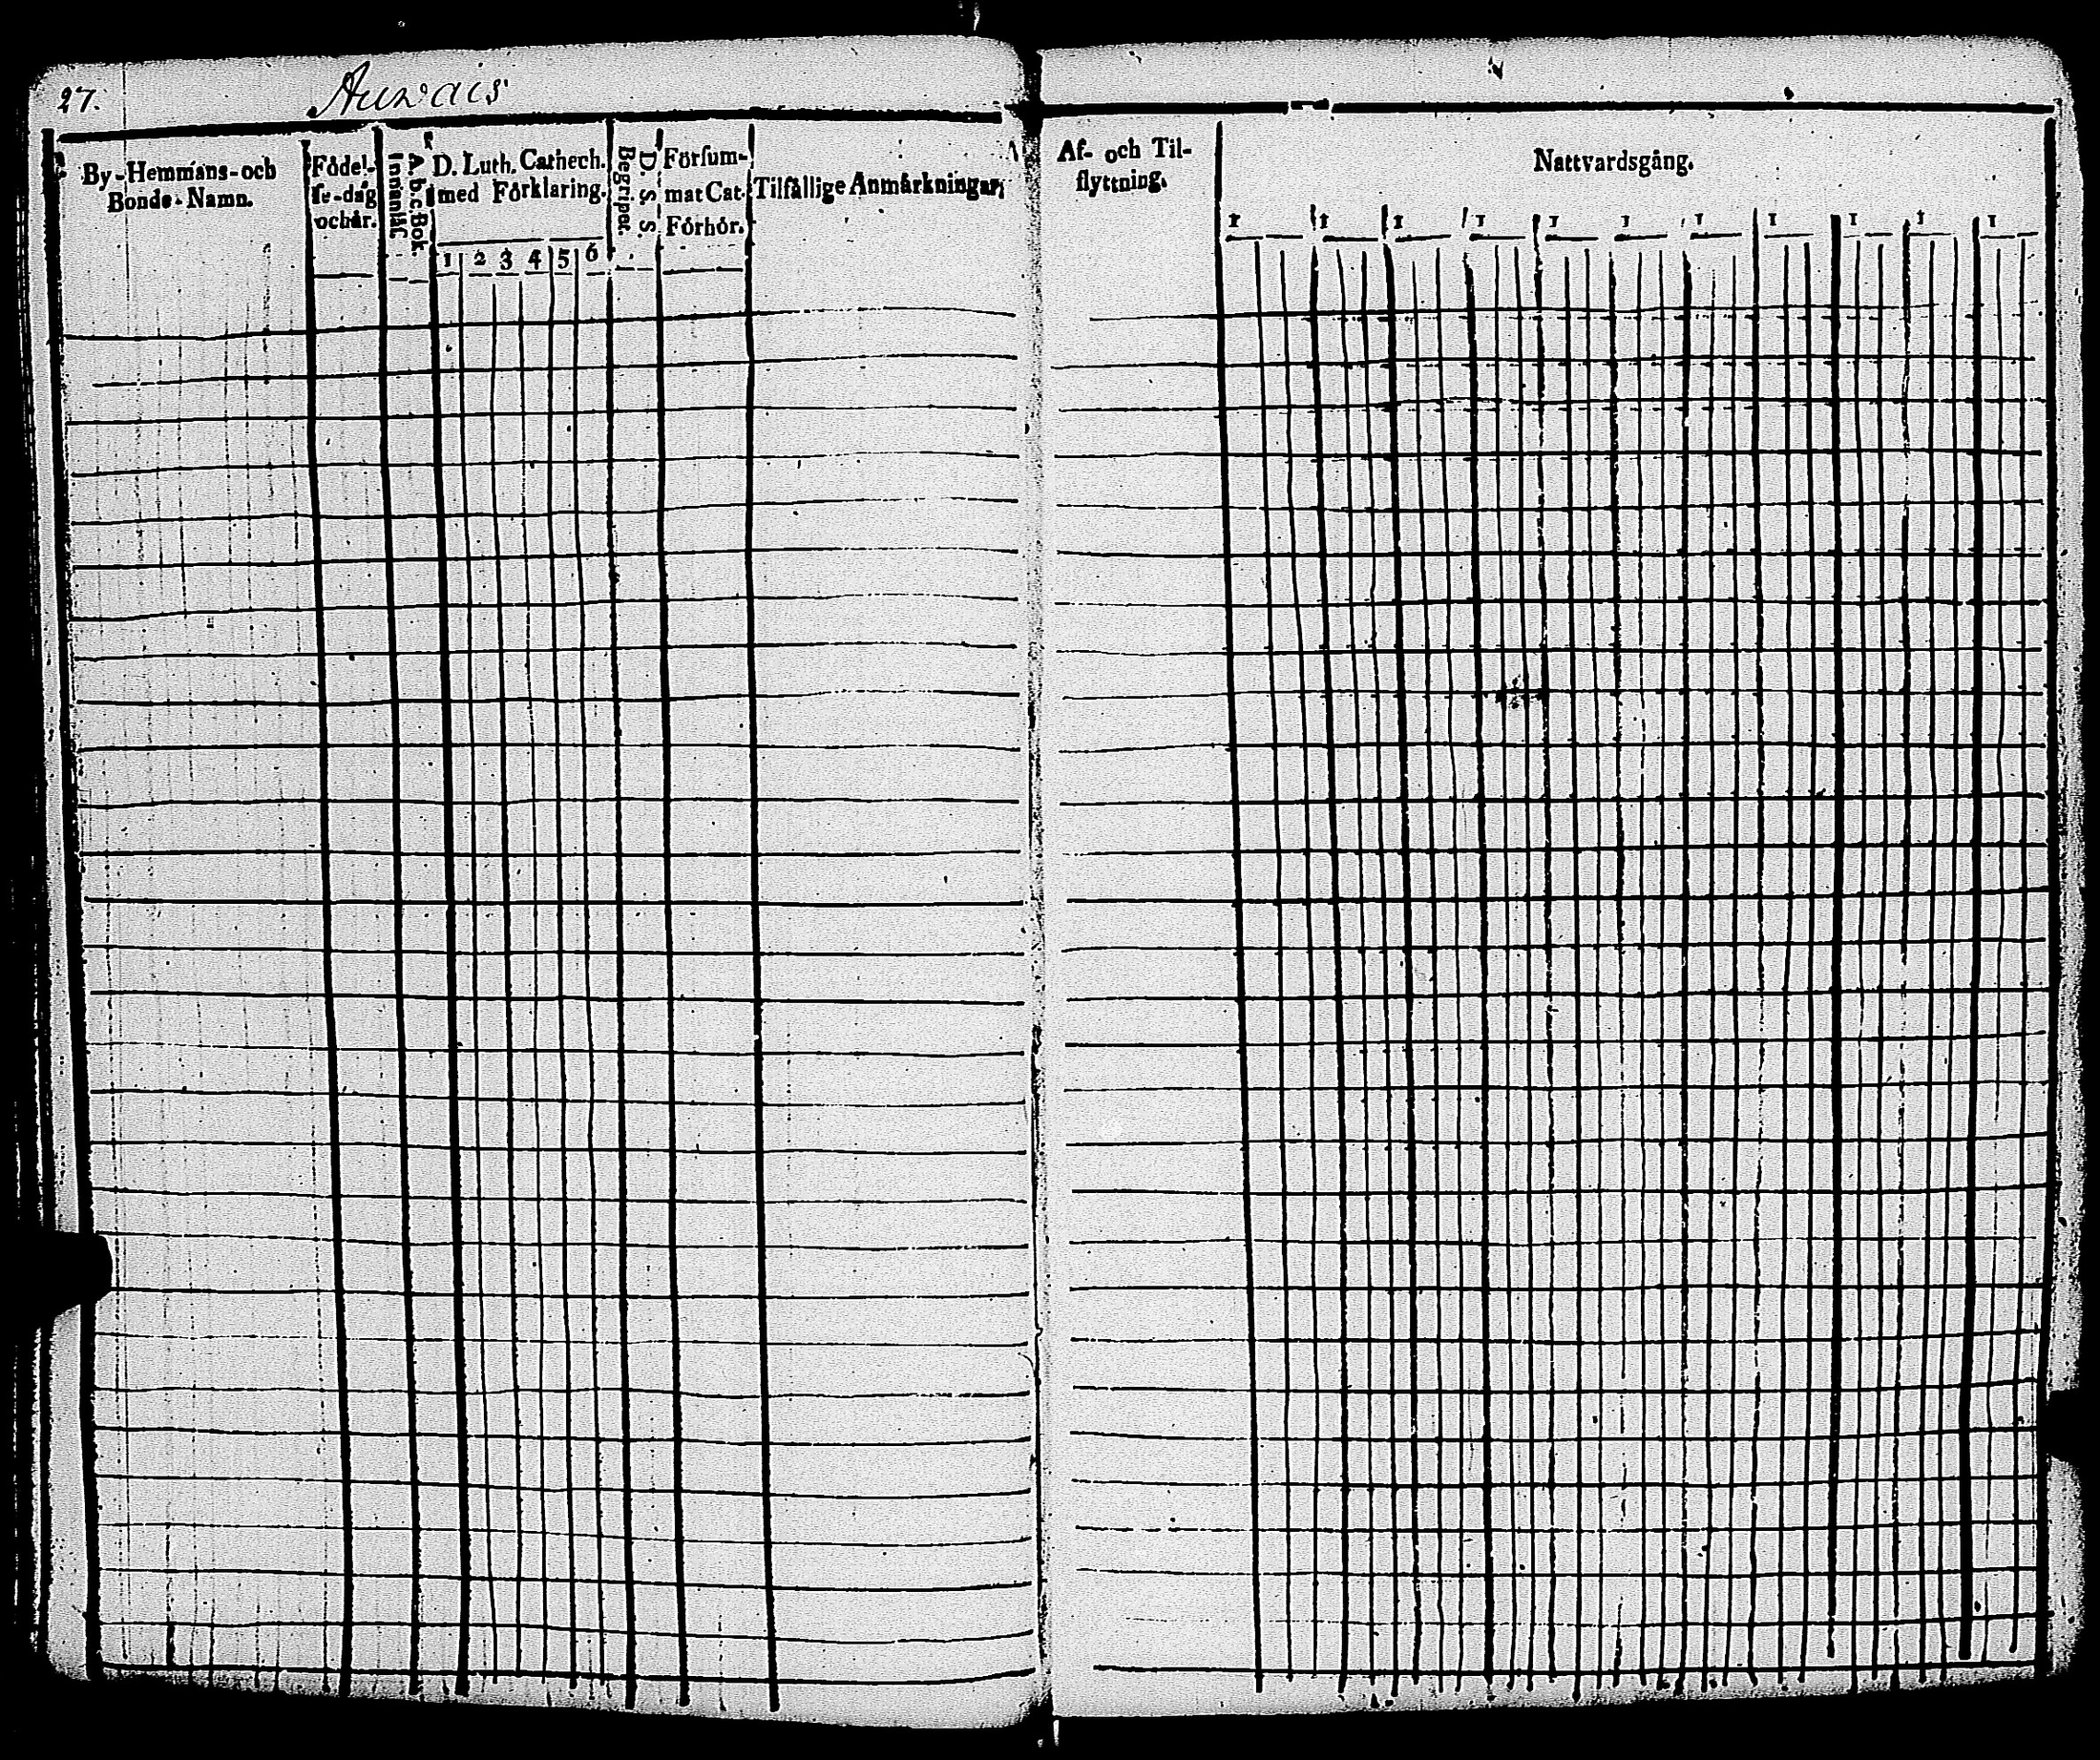 27.
Auvais
By-Hemmans-och
Bonde-Namn.
Födel-
se-dag
och år.
A b c Bok
Innanläs
D. Luth. Cathech.
med Förklaring.
1 2 3 4 5 6
Begriper
D. S. S.
Försum-
mat Cat.
Förhör.
Tilfällige Anmärkningar,
Af- och Til-
flyttning.
Nattvardsgång.
1 1 1 1 1 1 1 1 1 1 1